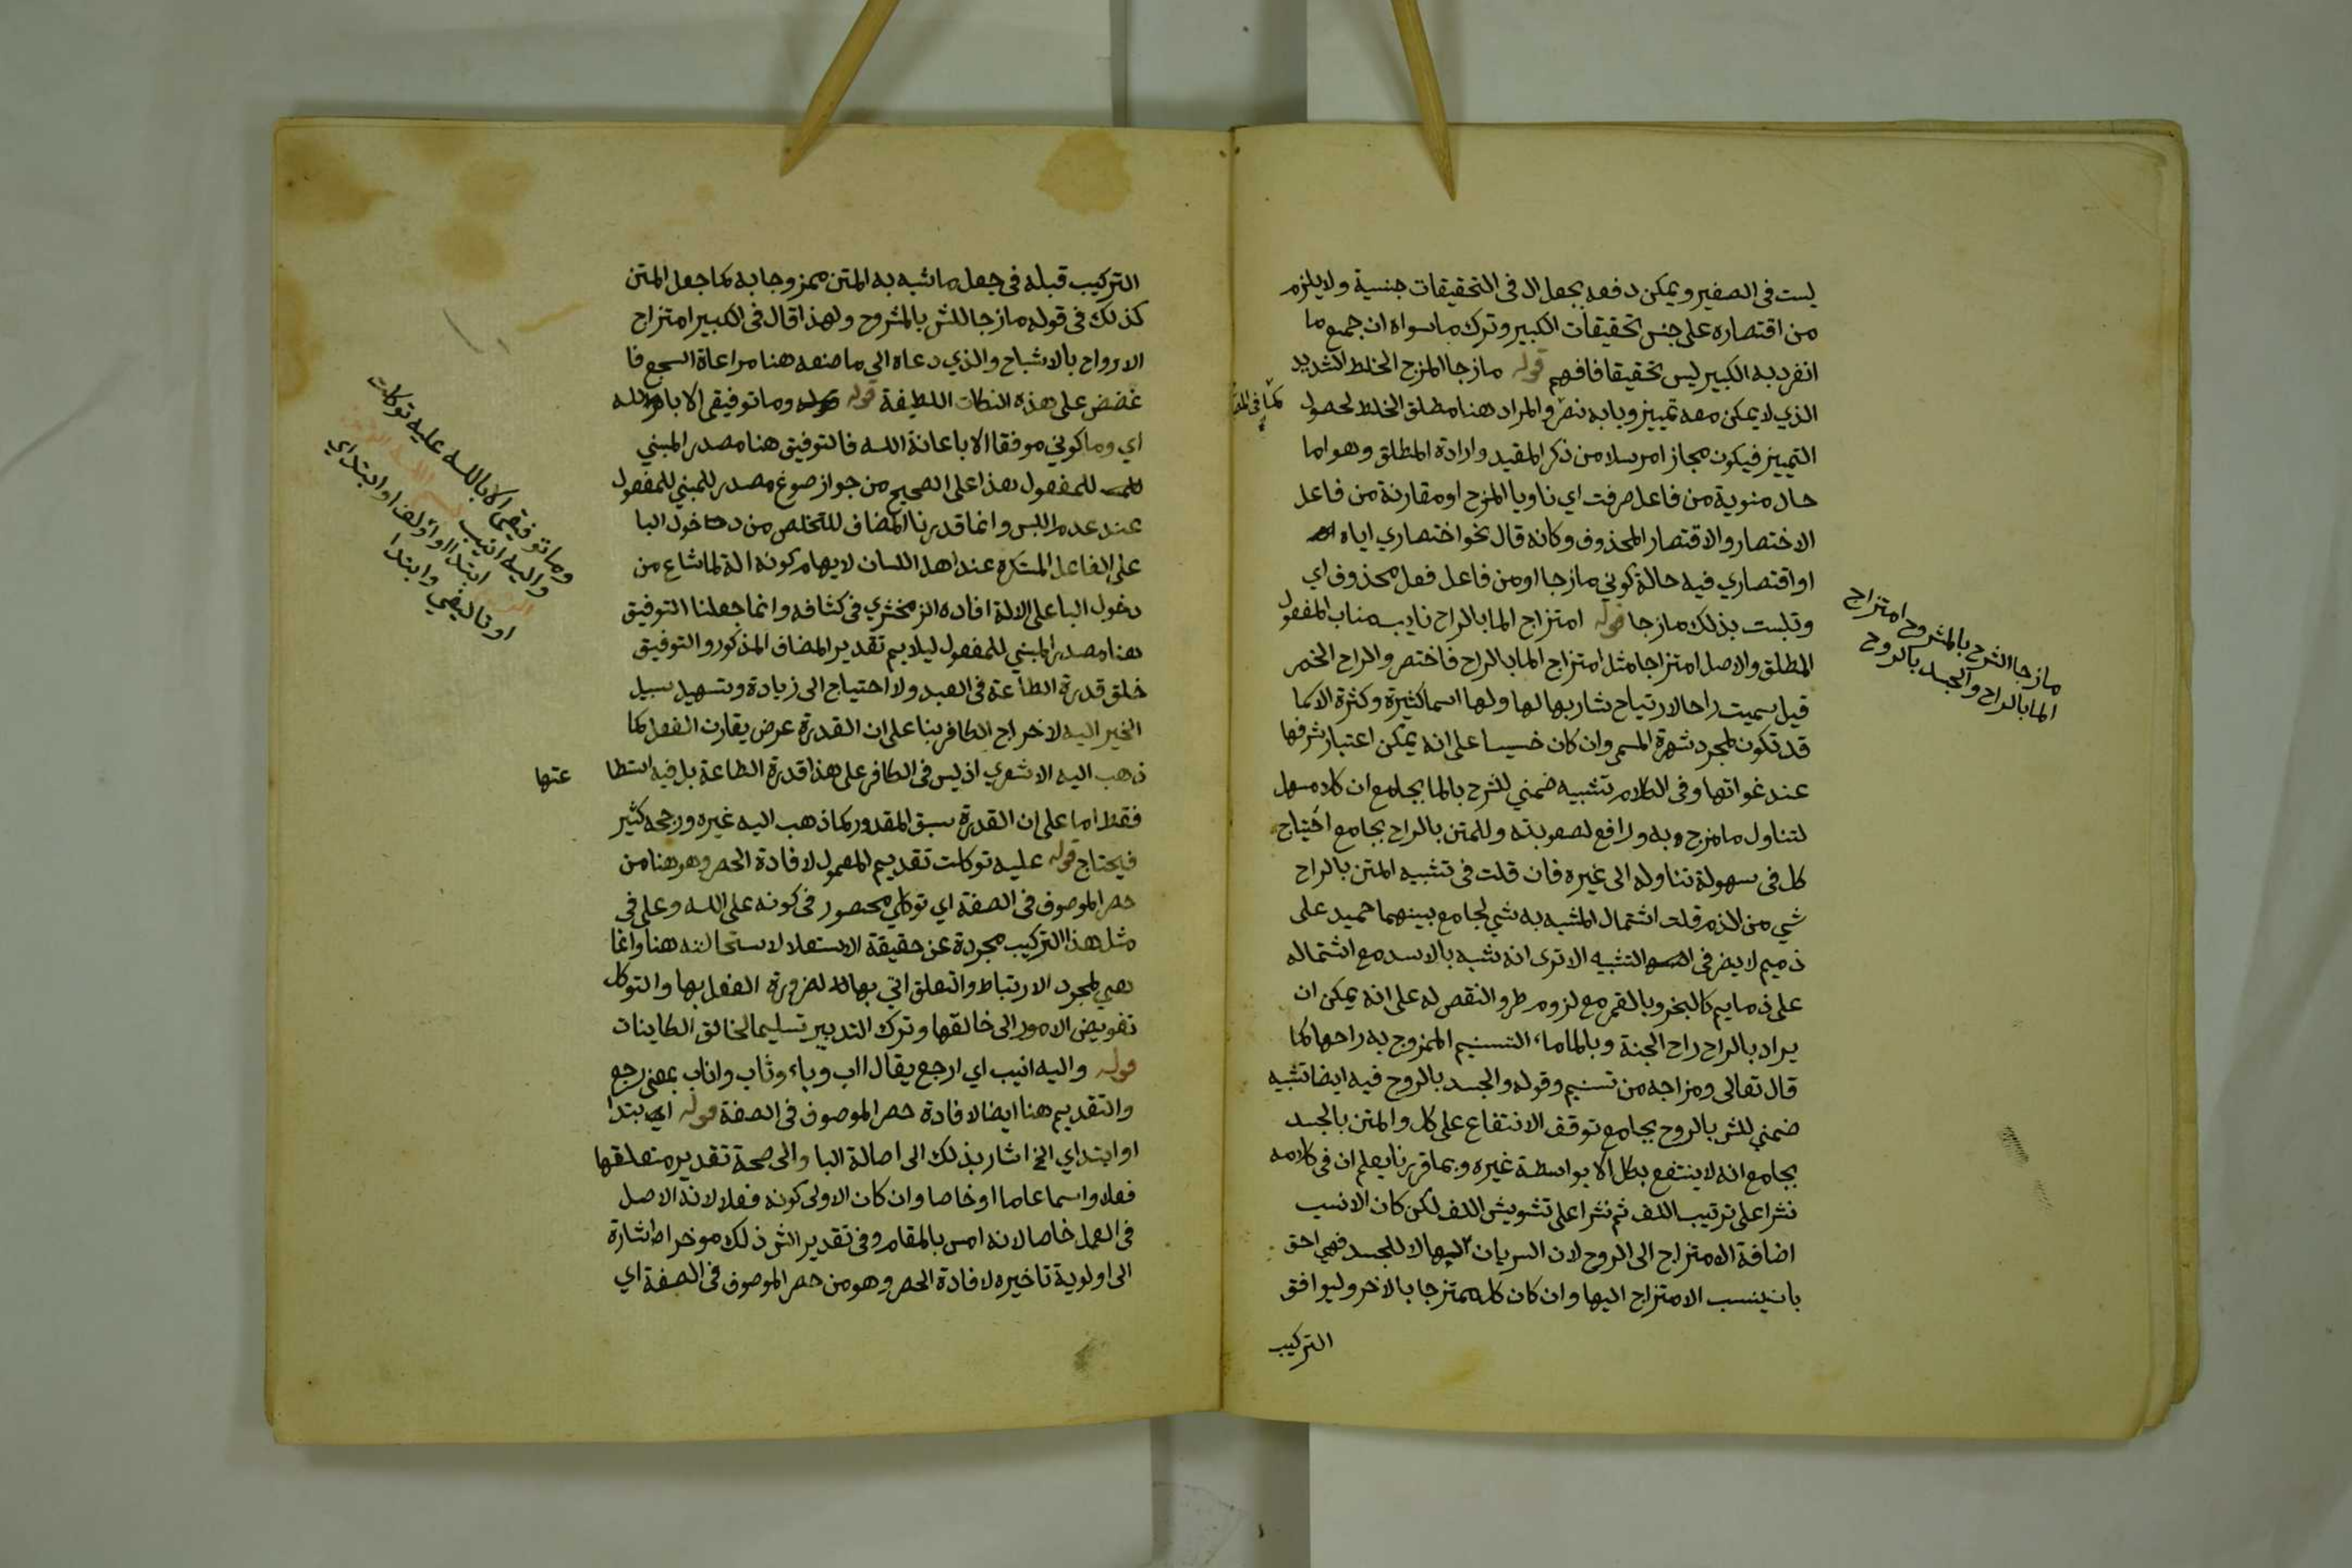 ليست فى الصغير ويمكن دفعه بجعل ال فى التحقيقات جنسية ولا يلزم
من اقتصاره على جنس تحقيقات الكبير وترك ما سواه ان جميع ما
انفرد به الكبير ليس تحقيقا فافهم قوله مازجا المزج الخلط الشديد
الذي لا يمكن معه تمييز وبابه نصر والمراد هنا مطلق الخلط لحصول
التمييز فيكون مجازا مرسلا من ذكر المقيد وارادة المطلق وهو اما
حال منوية من فاعل صرفت اي ناويا المزج او مقارنة من فاعل
الاختصار والاقتصار المحذوف وكانه قال نحو اختصاري اياه
او اقتصاري فيه حالة كوني مازجا او من فاعل فعل محذوف اي
وتلبست بذلك مازجا قوله امتزاج الما بالراح نايب مناب المفعول
المطلق والاصل امتزاجا مثل امتزاج الما بالراح فاختصر والراح الخمر
قيل سميت راحا لارتياح شاربها لها ولها اسما كثيرة وكثرة الاسما
قد تكون لمجرد شهرة المسمى وان كان خسيسا على انه يمكن اعتبار شرفها
عند غواتها وفى الكلام تشبيه ضمني للشرح بالما بجامع ان كلا مسهل
لتناول ما مزج به ورافع لصعوبته وللمتن بالراح بجامع احتياج
كل فى سهولة تناوله الى غيره فان قلت فى تشبيه المتن بالراح
شي من الذم قلت اشتمال المشبه به شي لجامع بينهما حميد على
ذميم لا يضر فى التشبيه الا ترى انه شبه بالاسد مع اشتماله
على ذمايم كالبخر وبالقمر مع لزوم طرو النقص له على انه يمكن ان
يراد بالراح راح الجنة وبالما ماء التسنيم الممزوج به راحها كما
قال تعالى ومزاجه من تسنيم وقوله والجسد بالروح فيه ايضا تشبيه
ضمني للشر بالروح بجامع توقف الانتفاع على كل والمتن بالجسد
بجامع انه لا ينتفع بكل الا بواسطة غيره وبما قررنا يعلم ان فى كلامه
نشرا على ترتيب اللف ثم نشرا على تشويش اللف لكن كان الانسب
اضافة الامتزاج الى الروح لان السريان اليها لا للجسد فهي احق
بان ينسب الامتزاج اليها وان كان كل ممتزجا بالاخر وليوافق
التركيب
مازجا الشرح بالمشروح امتزاج
الما بالراح والجسد بالروح
التركيب قبله فى جعل ما شبه به المتن ممزوجا به كما جعل المتن
كذلك فى قوله مازجا للشر بالمشروح ولهذا قال فى الكبير امتزاج
الارواح بالاشباح والذي دعاه الى ما صنعه هنا مراعاة السجع فا
غضض على هذه النكات اللطيفة قوله وما توفيقى الا بالله
اي وما كوني موفقا الا باعانة الله فالتوفيق هنا مصدر المبني
للمفعول هذا على الصحيح من جواز صوغ مصدر للمبني للمفعول
عند عدم اللبس وانما قدرنا المضاف للتخلص من دخول البا
على الفاعل المستكره عند اهل اللسان لايهام كونه الة لما شاع من
دخول البا على الالة افاده الزمخشري فى كشافه وانما جعلنا التوفيق
هنا مصدر المبني للمفعول ليلايم تقدير المضاف المذكور والتوفيق
خلق قدرة الطاعة فى العبد ولا احتياج الى زيادة وتسهيل سبيل
الخير اليه لاخراج الكافر بنا على ان القدرة عرض يقارن الفعل كما
ذهب اليه الاشعري اذ ليس فى الكافر على هذا قدرة الطاعة بل فيه استطا عتها
فقط اما على ان القدرة سبق المقدور كما ذهب اليه غيره ورجحه كثير
فيحتاج قوله عليه توكلت تقديم المعمول لافادة الحصر وهو هنا من
حصر الموصوف فى الصفة اي توكلي محصور فى كونه على الله وعلى فى
مثل هذا التركيب مجردة عن حقيقة الاستعلا لاستحالته هنا وانما
هي لمجرد الارتباط والتعلق اتي بها لضرورة الفعل بها والتوكل
تفويض الامور الى خالقها وترك التدبير تسليما لخالق الكاينات
قوله واليه انيب اي ارجع يقال اب وباء وثاب واناب بمعنى رجع
والتقديم هنا ايضا لافادة حصر الموصوف فى الصفة قوله ابتدا
او ابتداي الخ اشار بذلك الى اصالة البا والى صحة تقدير متعلقها
فعلا واسما عاما او خاصا وان كان الاولى كونه فعلا لانه الاصل
فى العمل خاصا لانه امس بالمقام وفى تقدير الشر ذلك موخرا اشارة
الى اولوية تاخيره لافادة الحصر وهو من حصر الموصوف فى الصفة اي
وما توفيقي الا بالله عليه توكلت
واليه انيب بسم الله
ابتدا او اولف او ابتداي
او تاليفي وابتدا